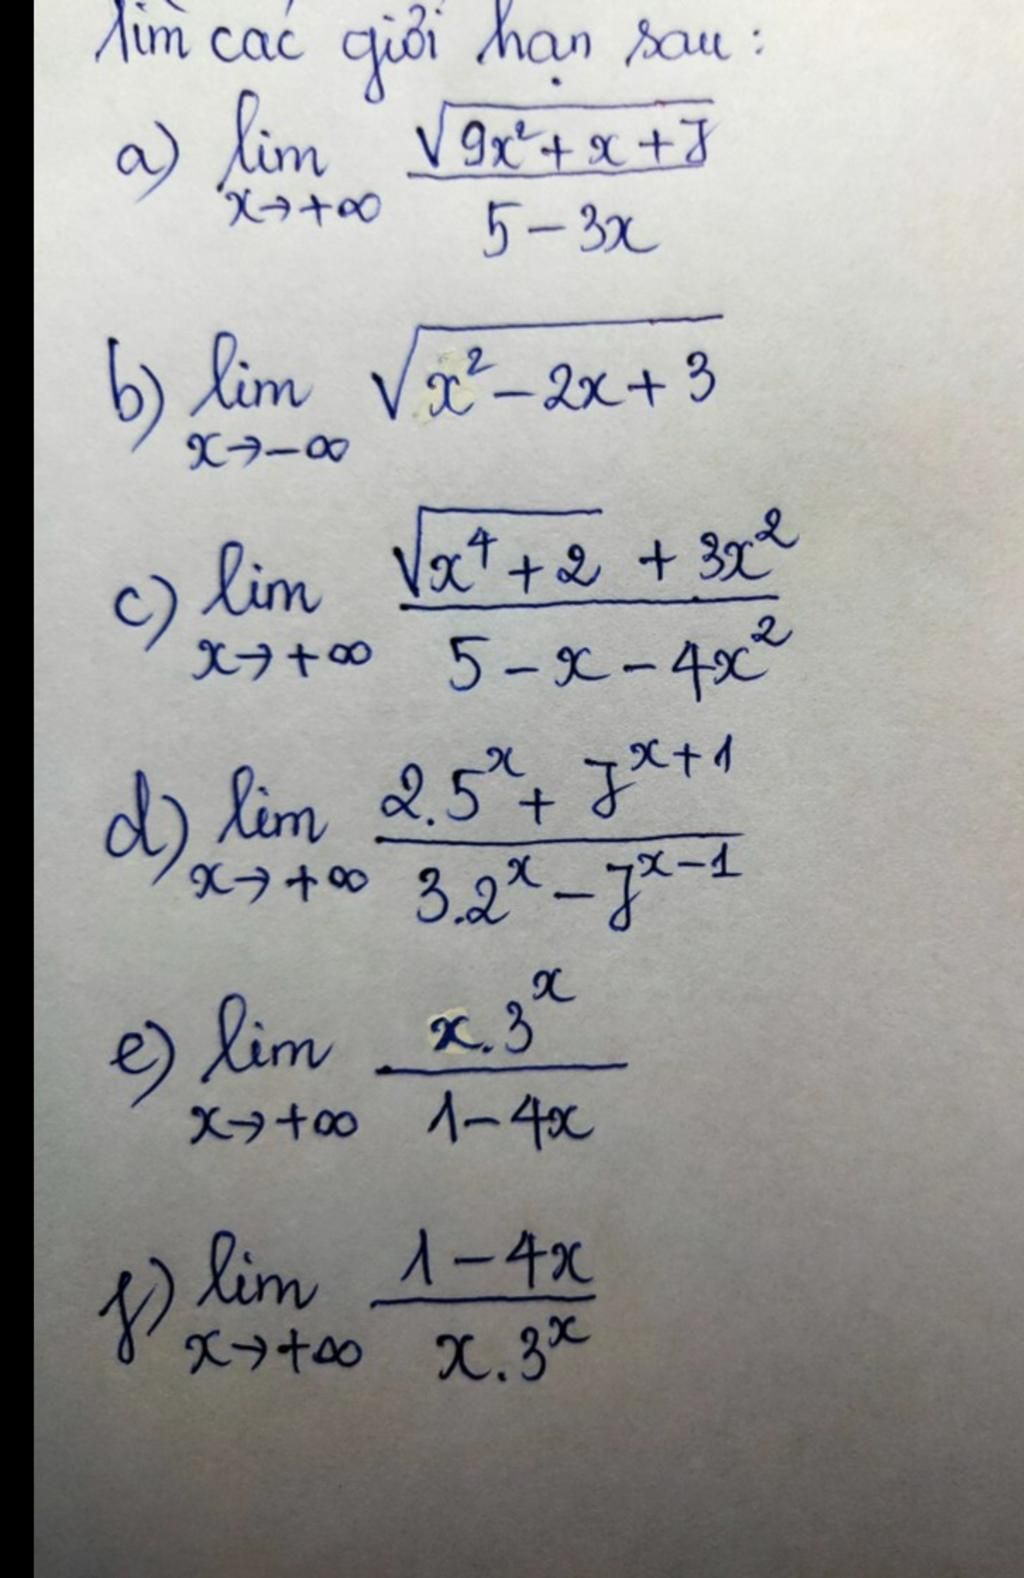 Tìm các giới hạn sau:
a) lim x→+∞ √(9x²+x+7) / (5-3x)
b) lim x→-∞ √(x²-2x+3)
c) lim x→+∞ (√(x⁴+2) + 3x²) / (5-x-4x²)
d) lim x→+∞ (2.5^x + 7^(x+1)) / (3.2^x - 7^(x-1))
e) lim x→+∞ x.3^x / (1-4x)
f) lim x→+∞ (1-4x) / x.3^x